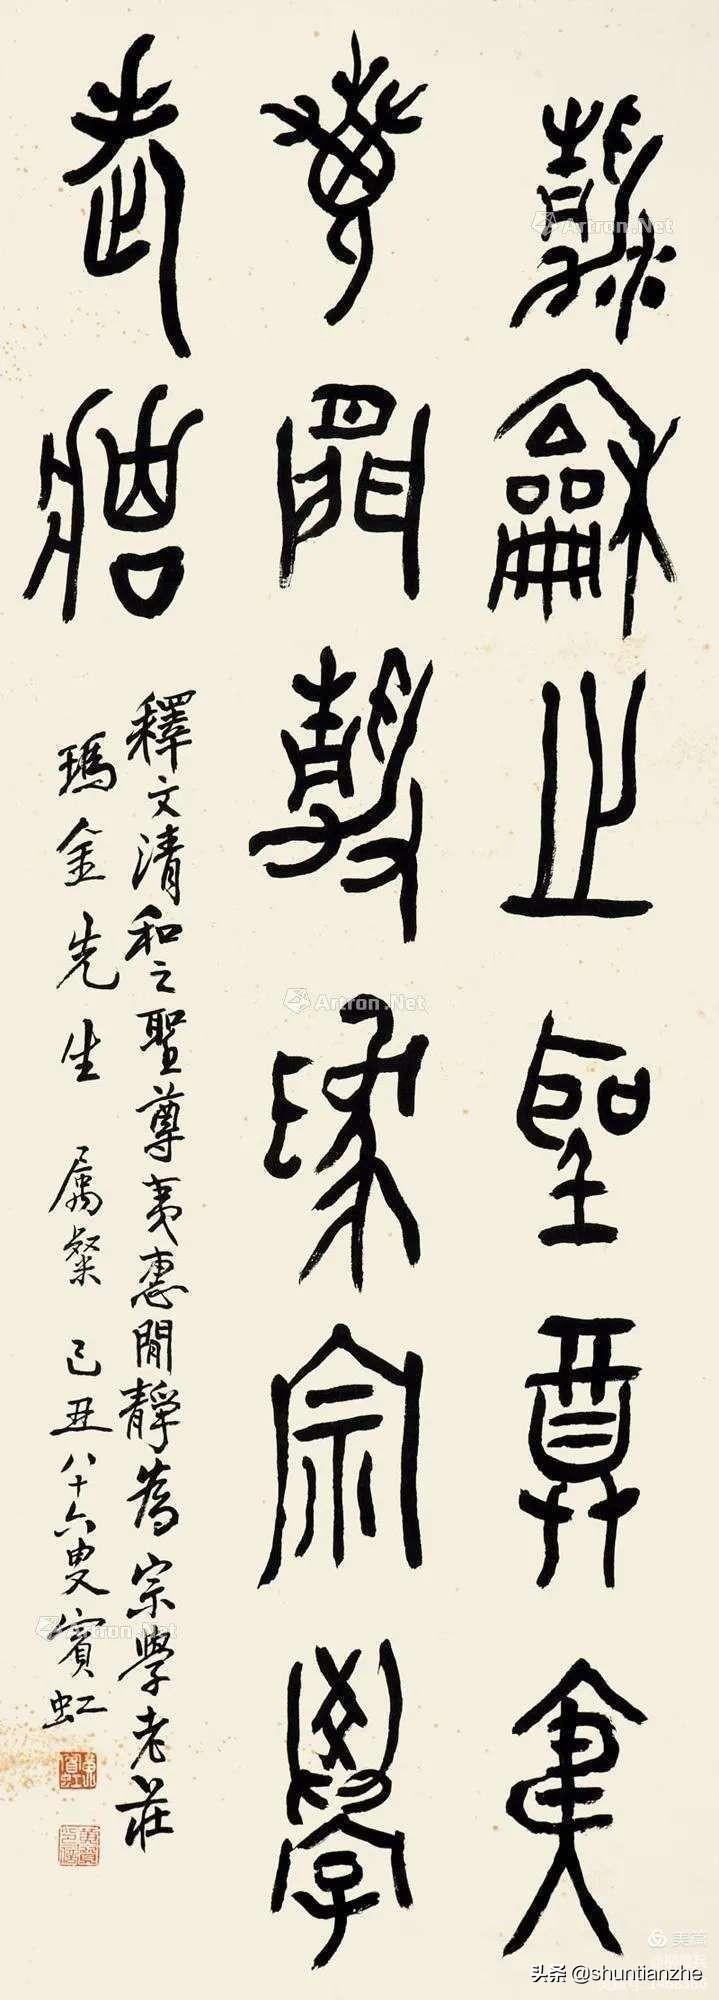 清龢之聖尊夷
惠閒靜為宗學
老莊
釋文清和之聖尊夷惠閒靜為宗學老莊
瑪金先生 屬粲 己丑八十六叟賓虹
Artron.Net
Artron.Net
Artron.Net
美篇
头条 @shuntianzhe